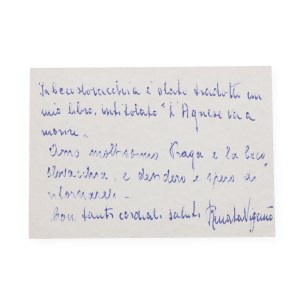 In Cecoslovacchia è stato tradotto un
mio libro, intitolato "L'Agnese va a
morire".
Amo moltissimo Praga e la Ceco-
slovacchia, e desidero e spero di
ritornarci.
Con tanti cordiali saluti Renata Viganò